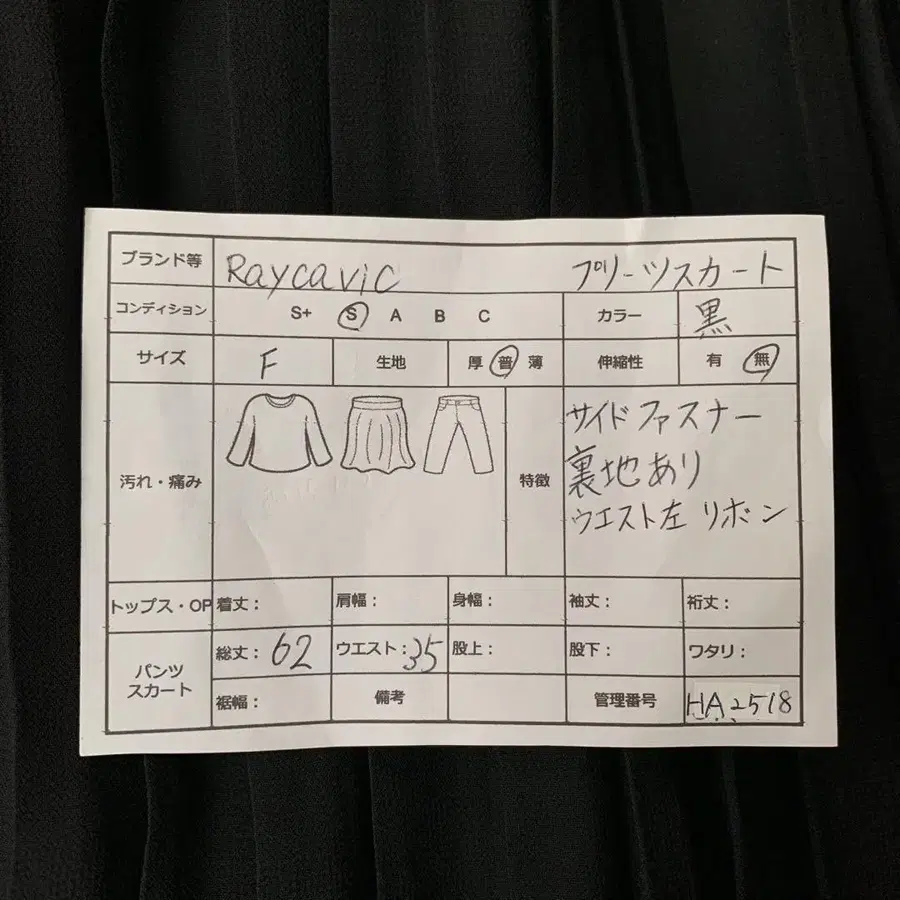 ブランド等 Raycavic プリーツスカート
コンディション S+ S A B C カラー 黒
サイズ F 生地 厚 普 薄 伸縮性 有 無
汚れ・痛み 特徴
サイドファスナー
裏地あり
ウエスト左 リボン
トップス・OP 着丈: 肩幅: 身幅: 袖丈: 裄丈:
パンツ
スカート
総丈: 62 ウエスト: 35 股上: 股下: ワタリ:
裾幅: 備考 管理番号 HA2518